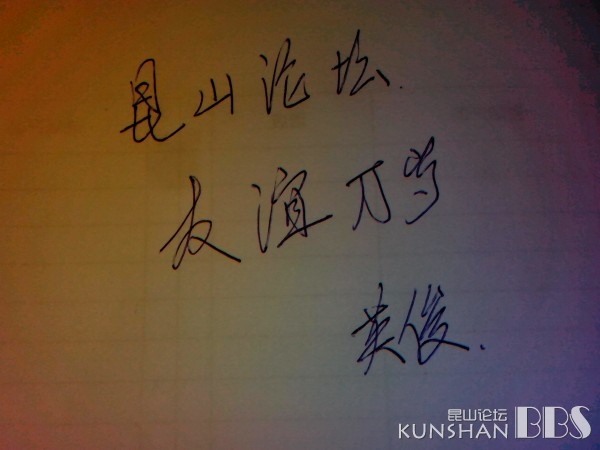 昆山论坛.
友谊万岁
英俊.
昆山论坛
KUNSHAN BBS